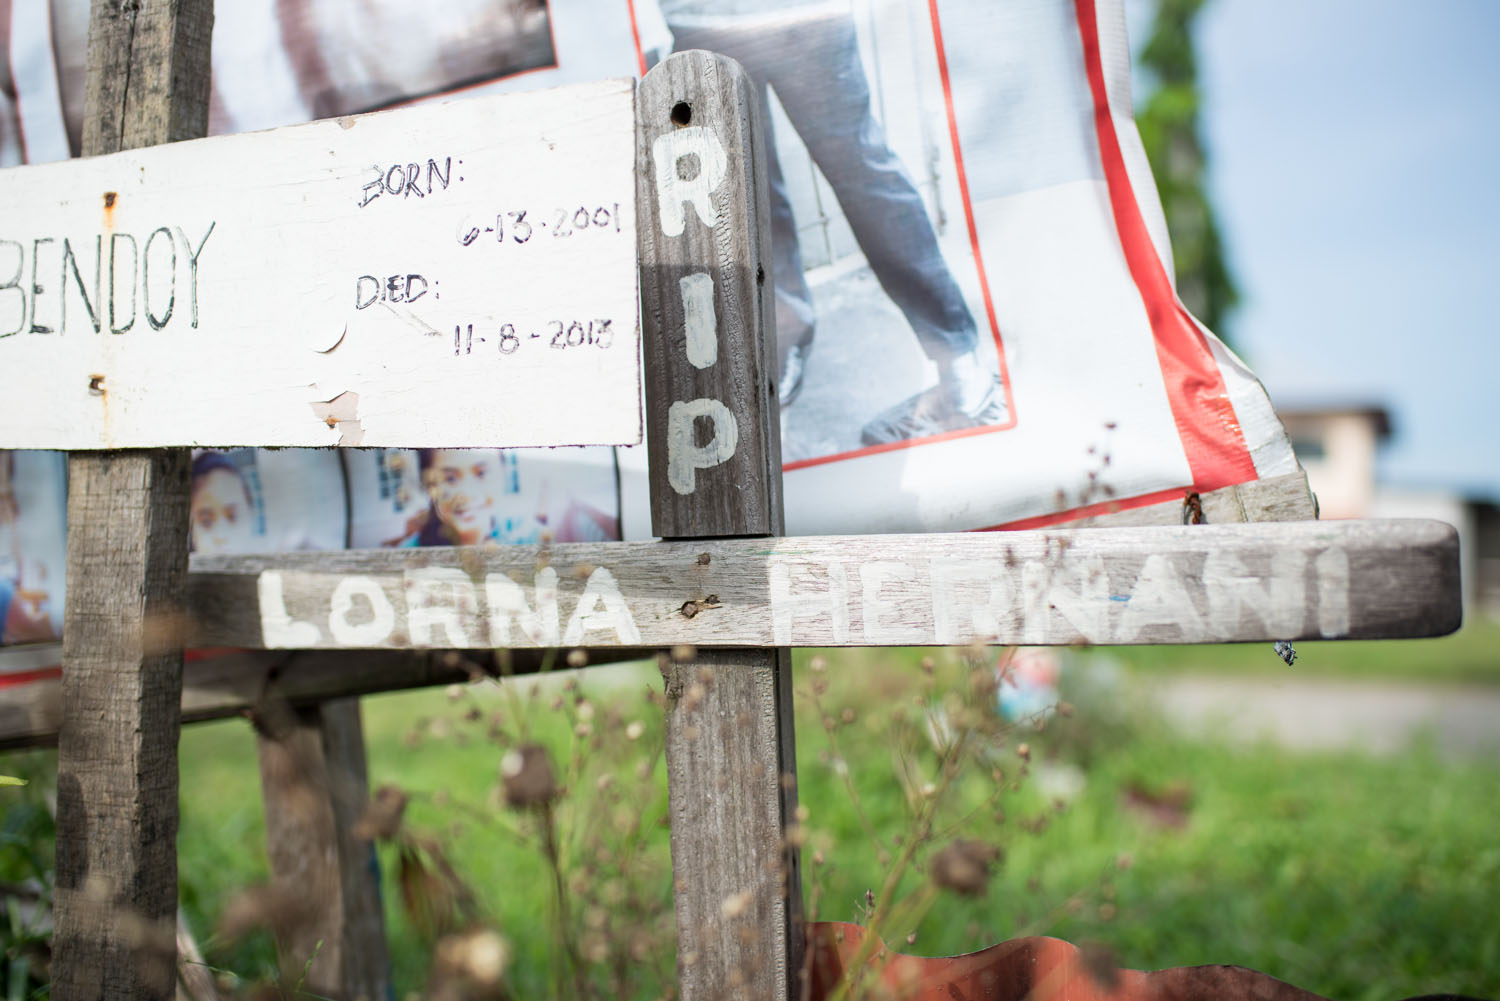 BENDOY
BORN:
6-13-2001
DIED:
11-8-2013
RIP
LORNA HERNANI